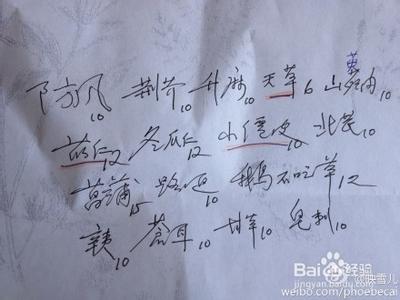 防风10 荆芥10 升麻10 天草6 山萸肉10
苡仁12 冬瓜仁12 水僵皮10 北芪10
菖蒲15 路路通10 鹅不吃草12
辛夷10 苍耳10 甘草10 皂刺10
Baidu经验
jingyan.baidu.com
weibo.com/phoebecai